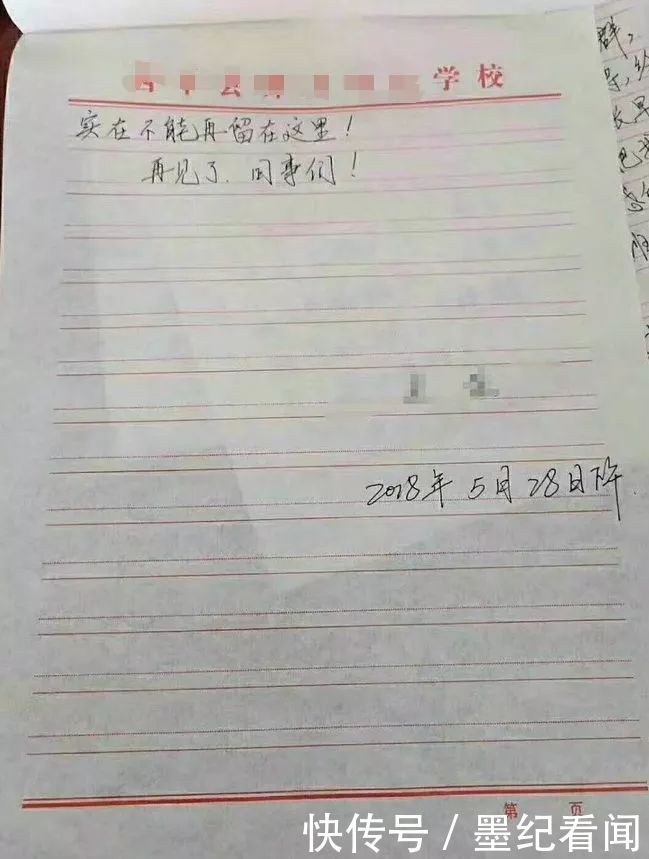 学校
实在不能再留在这里！
再见了．同事们！
2018年5月28日下午．
第 页
快传号 / 墨纪看闻